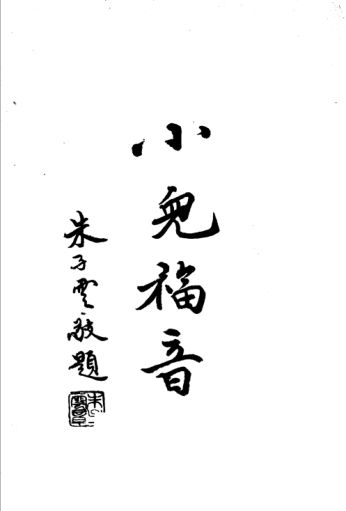 小兒福音
朱子雲敬題